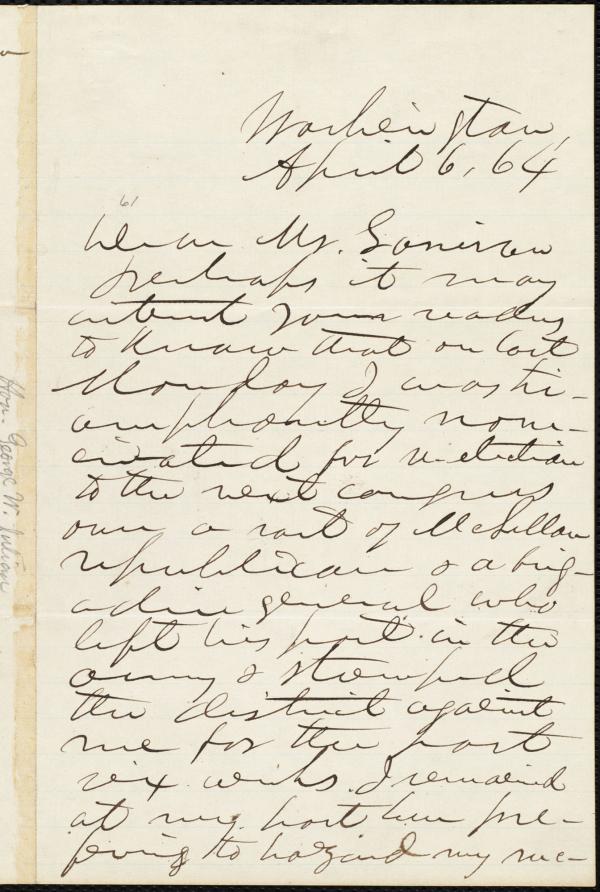 Washington,
April 6, 64
61
Dear Mr. Garrison
Perhaps it may
interest your readers
to know that on last
Monday I was tri-
umphantly nom-
inated for re-election
to the next congress
over a sort of McClellan
republican & a brig-
adier general who
left his post in the
army & stumped
the district against
me for the past
six weeks. I remained
at my post here pre-
fering to hazard my nue-
Hon. George W. Julian